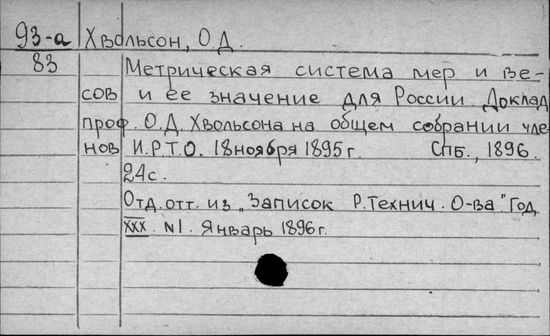 93-а Хвольсон, О.Д.
83 Метрическая система мер и ве-
сов и ее значение для России. Доклад
проф. О.Д. Хвольсона на общем собрании чле-
нов И.Р.Т.О. 18 ноября 1895 г. Спб., 1896.
24 с.
Отд. отт. из „Записок Р. Технич. О-ва". Год
XXX. N1. Январь 1896 г.